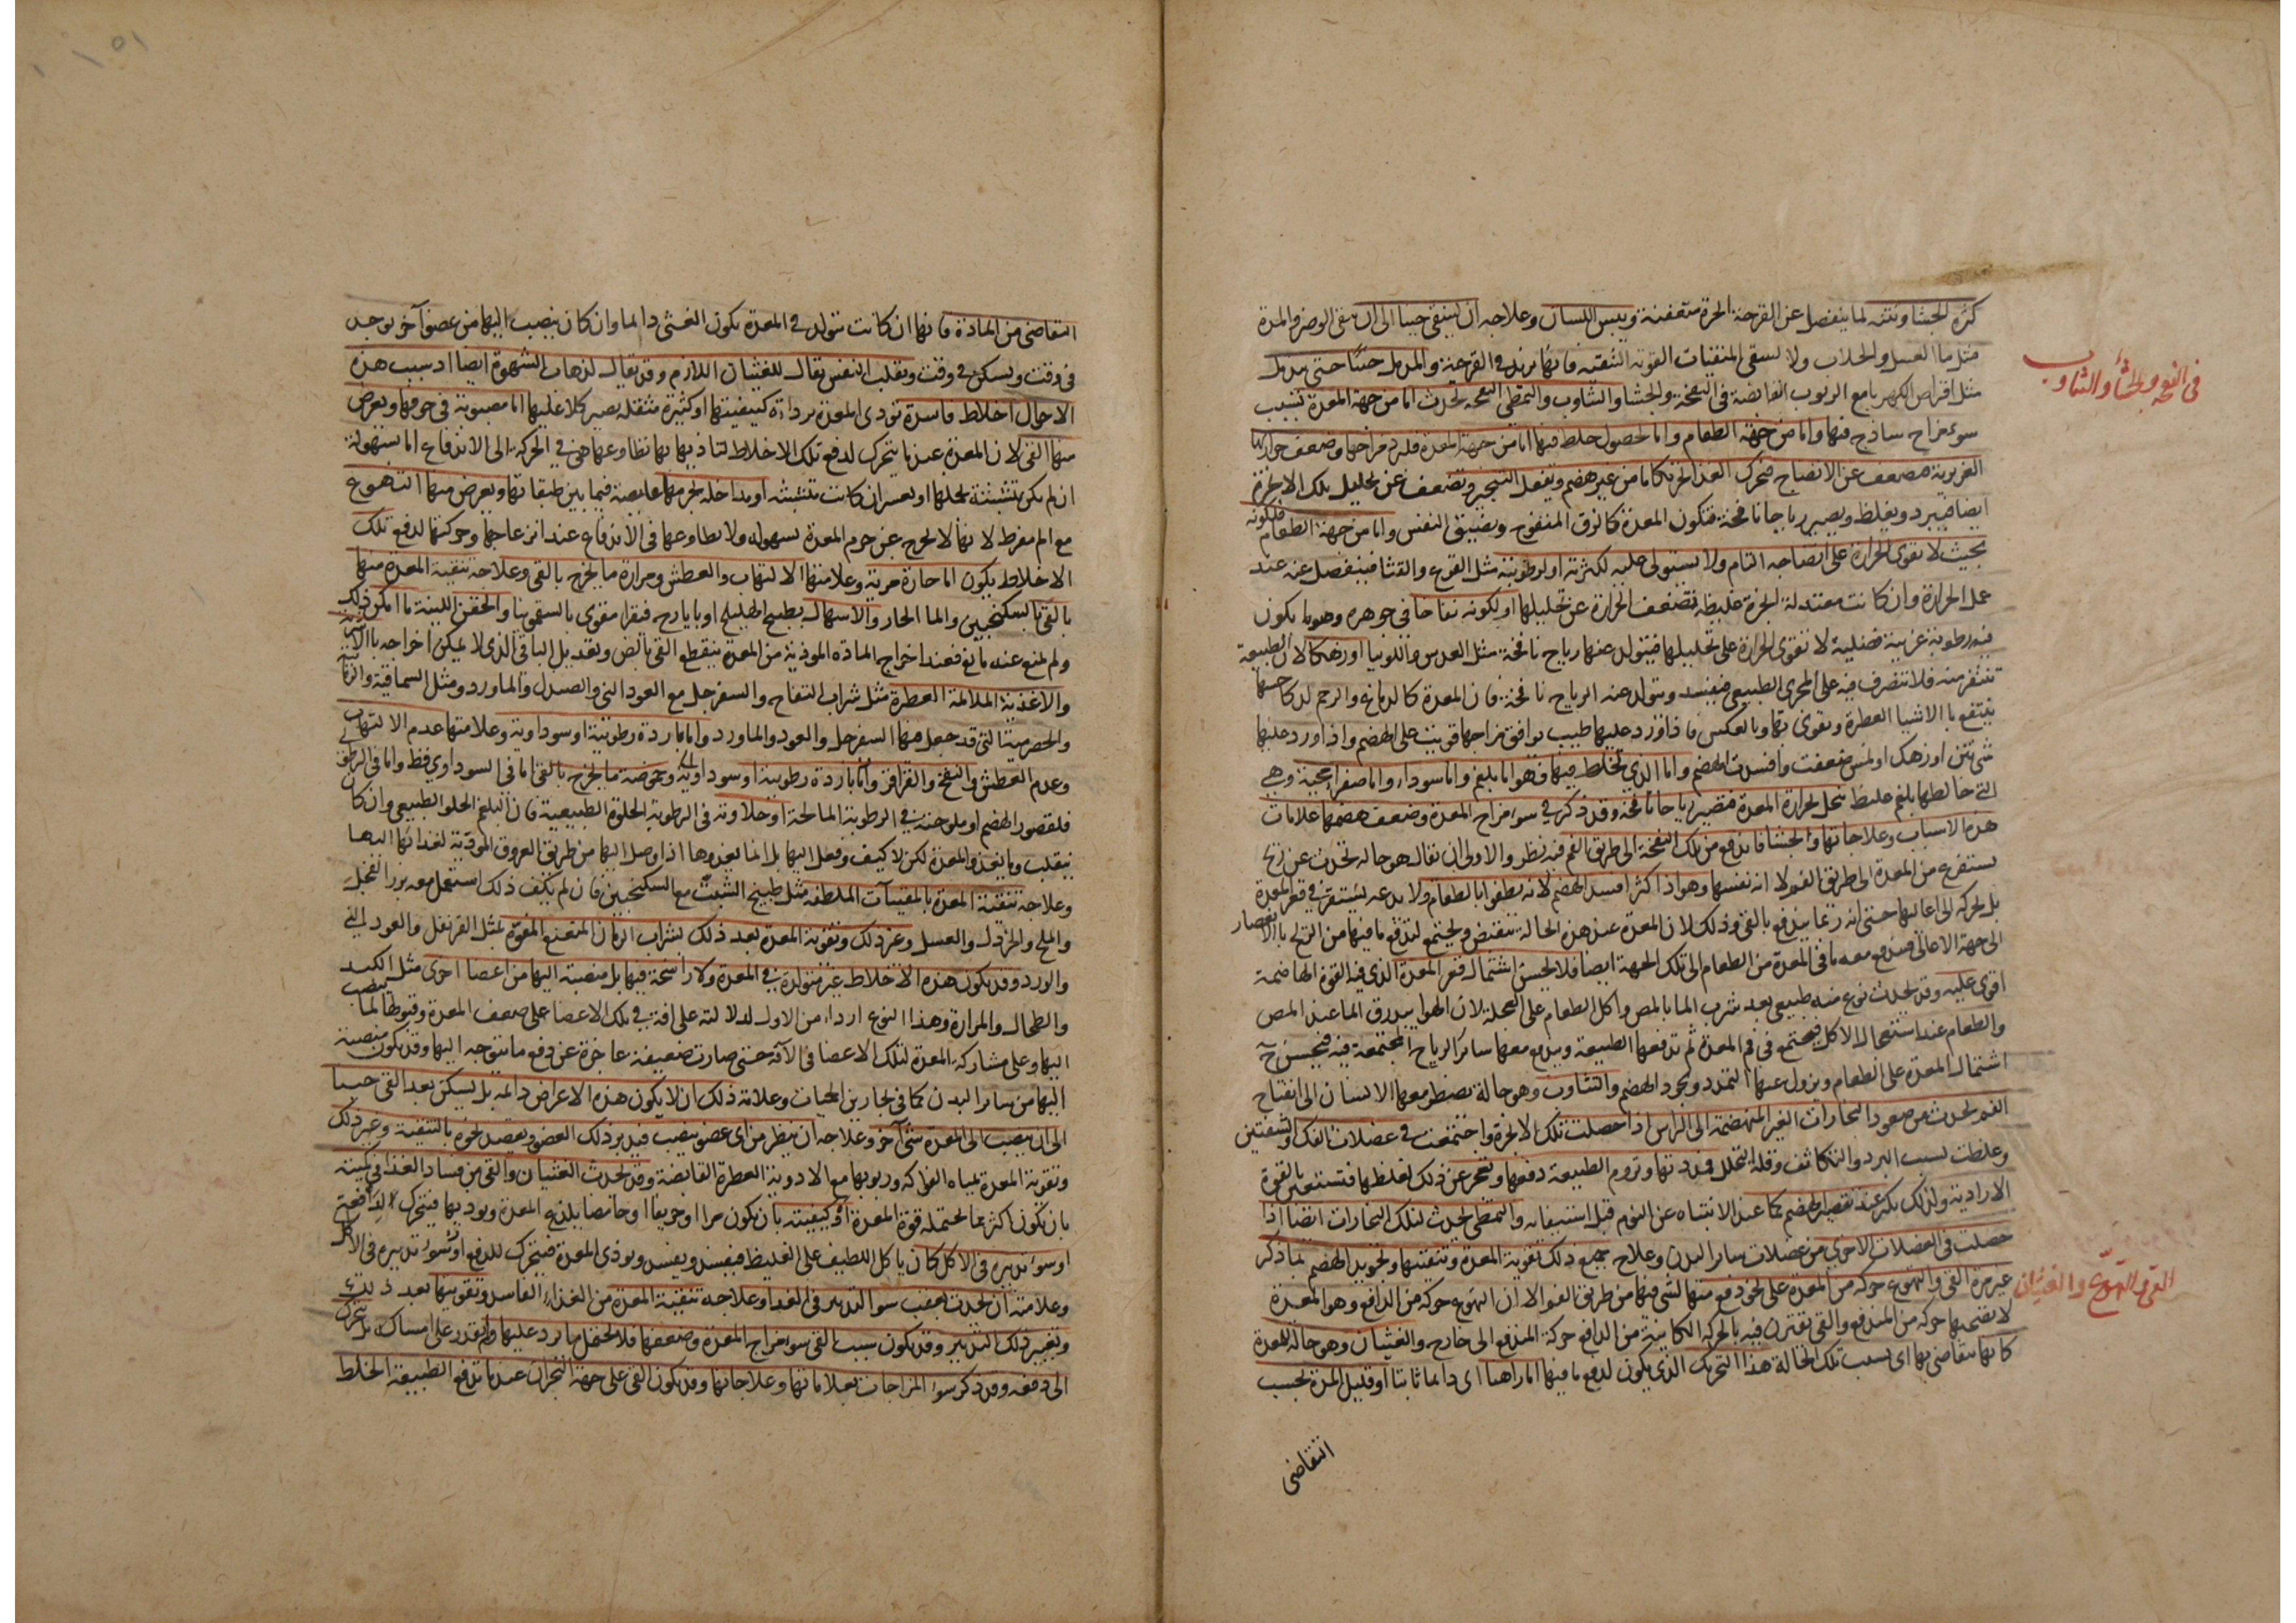 كثرة الجشا ونتنه لما ينفصل عن القرحة الخرة متعفنة ويبس اللسان وعلاجه ان ينقى حينا الى ان ينقى الوضر والمدة
مثل ما العسل والجلاب ولا يسقى المنقيات القوية التنقية فانها تزيد في القرحة والمدمل حينا حتى يدمل
مثل اقراص الكهربا مع الربوب القابضة في النفخة والجشا والتثاوب والتمطي النفخة تحدث اما من جهة المعدة بسبب
في النفخة والجشأ والتثاوب
سوء مزاج ساذج فيها واما من جهة الطعام واما لحصول خلط فيها اما من جهة المعدة فلبرد مزاجها وضعف حرارتها
الغريزية فتضعف عن الانضاج فتحرك الغذا تحريكا ما من غير هضم ويفعل التبخير وتضعف عن تحليل تلك الابخرة
ايضا فيبرد ويغلظ ويصير رياحا نافخة فتكون المعدة كالزق المنفوخ ويضيق النفس واما من جهة الطعام فلكونه
بحيث لا تقوى الحرارة على انضاجه التام ولا يستولي عليه لكثرته او لرطوبته مثل القرع والقثا فينفصل عنه عند
عمل الحرارة وان كانت معتدلة ابخرة غليظة تضعف الحرارة عن تحليلها او لكونه نفاخا في جوهره وهو ما يكون
فيه رطوبة غريبة فضلية لا تقوى الحرارة على تحليلها فيتولد عنها رياح نافخة مثل العدس واللوبيا او زهكا لان الطبيعة
تتنفر منه فلا تتصرف فيه على المجرى الطبيعي فيفسد ويتولد عنه الرياح نافخة فان المعدة كالدماغ والرحم لذكا حسها
ينتفع بالاشيا العطرة وتقوى بها وبالعكس فاذا ورد عليها طيب يوافق مزاجها قويت على الهضم واذا ورد عليها
شي نتن او زهك او لنس ضعفت وافسدت الهضم واما الذي لخلط فيها فهو اما بلغم واما سوداء واما صفراء محية وهي
التي خالطها بلغم غليظ تنحل بحرارة المعدة فتصير رياحا نافخة وقد ذكر في سوء مزاج المعدة وضعف هضمها علامات
هذه الاسباب وعلاجاتها والجشا ما يندفع من تلك النفخة الى طريق الفم فيه نظر والاولى ان يقال هو حالة تحدث عن ريح
يستفرغ من المعدة الى طريق الفم لا انه نفسها وهو اذا كثر افسد الهضم لانه يطفوا بالطعام ولا يدعه يستقر في قعر المعدة
بل يحركه الى اعاليها حتى انه ربما يندفع بالقي وذلك لان المعدة عند هذه الحالة تنقبض ويجتمع لتدفع ما فيها من الريح بالانعصار
الى جهة الاعالي فيندفع معه ما في المعدة من الطعام الى تلك الجهة ايضا فلا يحسن اشتمال قعر المعدة الذي فيه القوة الهاضمة
اقوى عليه وقد يحدث نوع منه طبيعي بعد شرب الما بالمص واكل الطعام على العجلة لان الهوا يبدرق الما عند المص
والطعام عند استعجال الاكل فيجتمع في فم المعدة ثم تدفعها الطبيعة ويندفع معها سائر الرياح المجتمعة فيه فيحسن ح
اشتمال المعدة على الطعام ويزول عنها التمدد ويجود الهضم والتثاوب وهو حالة يضطر معها الانسان الى انفتاح
الفم لحدث من صعود البخارات الغير المنهضمة الى الراس اذا حصلت تلك الابخرة واجتمعت في عضلات الفك والشفتين
وغلظت بسبب البرد والتكاثف وقلة التحلل فمددتها وتروم الطبيعة دفعها وتعجز عن ذلك لغلظها فتستعين بالقوة
الارادية ولذلك يكثر عند تقصير الهضم كما عند الانتباه عن النوم قبل استيفائه والتمطي لحدث لتلك البخارات ايضا اذا
حصلت في العضلات الاخرى من عضلات سائر البدن وعلاج جميع ذلك تقوية المعدة وتنقيتها وتجويد الهضم بما ذكر
القي والتهوّع والغثيان
غير مرة القي والتهوع حركة من المعدة على نحو دفع منها لشي فيها من طريق الفم الا ان التهوع حركة من الدافع وهو المعدة
لا تصحبها حركة من المندفع والقي تقترن فيه بالحركة الكائنة من الدافع حركة المندفع الى خارج والغثيان وهو حالة للمعدة
كانها تتقاضى بها اي بسبب تلك الحالة هذا التحريك الذي يكون لدفع ما فيها اما راهنا اي دائما ثابتا او قليل المدة بحسب
التقاضي
التقاضي من المادة فانها ان كانت تتولد في المعدة يكون الغثي دائما وان كان ينصب اليها من عضو آخر يوجد
في وقت ويسكن في وقت وتقلب النفس يقال للغثيان اللازم وقد يقال لذهاب الشهوة ايضا اذ سبب هذه
الاحوال اخلاط فاسدة تؤذى المعدة برداءة كيفيتها او كثيرة مثقلة يصير كلا عليها اما مصبوبة في جوفها ويعرض
منها القي لان المعدة عند ما يتحرك لدفع تلك الاخلاط لتاذيها بها تطاوعها هي في الحركة الى الاندفاع اما بسهولة
ان لم يكن متشبثة بحملها او بعسر ان كانت متشبثة او مداخلة لجرمها غايصة فيما بين طبقاتها ويعرض منها التهوع
مع الم مفرط لانها لا تخرج عن جرم المعدة بسهولة ولا تطاوعها في الاندفاع عند انزعاجها وحركتها لدفع تلك
الاخلاط يكون اما حارة مرية وعلامتها الالتهاب والعطش ومرارة ما يخرج بالقي وعلاجه تنقية المعدة منها
بالقي بالسكنجبين والما الحار والاسهال بطبيخ الهليلج او بايارج فيقرا مقوى بالسقمونيا والحقن اللينة ما امكن ذلك
ولم يمنع عنه مانع فعند اخراج المادة الموذية من المعدة ينقطع القي بالض وتعديل الباقي الذي لا يمكن اخراجه بالاشربة
والاغذية الملائمة العطرة مثل شراب التفاح والسفرجل مع العود الني والصندل والماورد ومثل السماقية والرمانية
والحصرمية التي قد جعل معها السفرجل والعود والماورد واما باردة رطوبية او سوداوية وعلامتها عدم الالتهاب
وعدم العطش والنفخ والقراقر واما باردة رطوبية او سوداوية وحموضة ما يخرج بالقي اما في السوداوي فقط واما في الرطوبي
فلقصور الهضم او ملوحته في الرطوبة المالحة او حلاوته في الرطوبة الحلوة الطبيعية فان البلغم الحلو الطبيعي وان كان
ينقلب وما يغذو المعدة لكن لا كيف وفعل اليها بل انما يغذوها اذا وصل اليها من طريق العروق المودية لغذائها اليها
وعلاجه تنقية المعدة بالمقيآت الملطفة مثل طبيخ الشبث مع السكنجبين فان لم يكف ذلك استعمل معه بزر الفجل
والملح والخردل والعسل وغير ذلك وتقوية المعدة بعد ذلك بشراب الرمان المنعنع المقوى بمثل القرنفل والعود الني
والورد وقد يكون هذه الاخلاط غير متولدة في المعدة ولا راسخة فيها بل منصبة اليها من اعضا اخرى مثل الكبد
والطحال والمرارة وهذا النوع اردا من الاول لدلالته على افة في تلك الاعضا على ضعف المعدة وقبولها لما ينصب
اليها وعلى مشاركة المعدة لتلك الاعضا في الآفة حتى صارت ضعيفة عاجزة عن دفع ما يتوجه اليها وقد يكون منصبة
اليها من سائر البدن كما في بحارين الحميات وعلامة ذلك ان لا يكون هذه الاعراض دائمة بل يسكن بعد القي حينا
الى ان ينصب الى المعدة شي آخر وعلاجه ان ينظر من اي عضو ينصب فيدبر ذلك العضو ويقصد نحوه بالتنقية وغير ذلك
وتقوية المعدة بمياه الفواكه وربوبها مع الادوية العطرة القابضة وقد يحدث الغثيان والقي من فساد الغذا في كميته
بان يكون اكثر مما تحتمله قوة المعدة او كيفيته بان يكون مرا او حريفا او حامضا يلذع المعدة ويوذيها فيتحرك الدافعة
او سوء تدبيره في الاكل كان ياكل اللطيف على الغليظ فيفسد ويفسد ويوذى المعدة فيتحرك للدفع او سوء تدبيره في الاكل
وعلامته ان يحدث بعقب سوء التدبير في الغذا وعلاجه تنقية المعدة من الغذاء الفاسد وتقويتها بعد ذلك
وتغيير ذلك التدبير وقد يكون سبب القي سوء مزاج المعدة وضعفها فلا تحتمل ما يرد عليها ولم تقدر على امساكه بل يتحرك
الى دفعه وقد ذكر سوء المزاجات بعلاماتها وعلاجاتها وقد يكون القي على جهة البحران عند ما تدفع الطبيعة الخلط